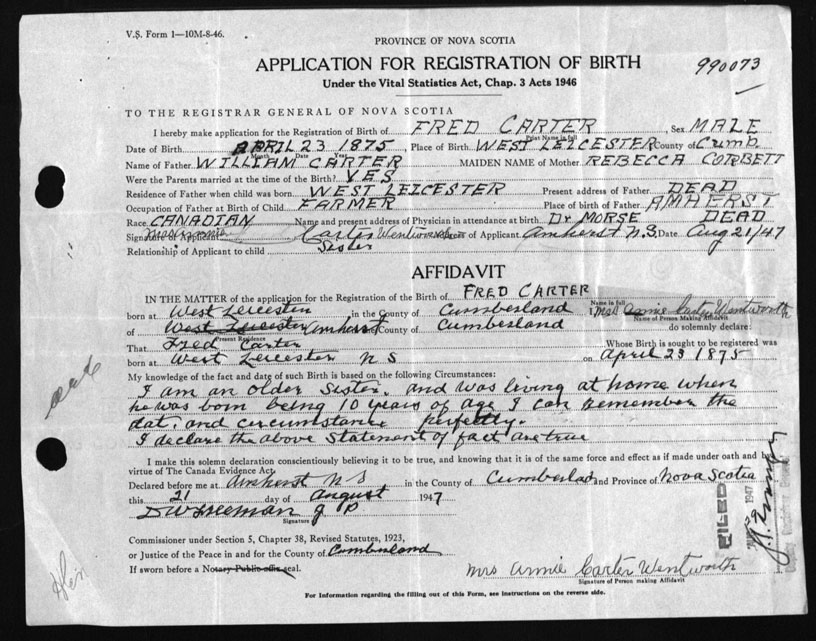 V.S. Form 1—10M-8-46.
PROVINCE OF NOVA SCOTIA
APPLICATION FOR REGISTRATION OF BIRTH
990073
Under the Vital Statistics Act, Chap. 3 Acts 1946
TO THE REGISTRAR GENERAL OF NOVA SCOTIA
I hereby make application for the Registration of Birth of FRED CARTER, Sex MALE
Print Name in full
Date of Birth APRIL 23 1875, Place of Birth WEST LEICESTER County of Cumb.
Month Date Year
Name of Father WILLIAM CARTER MAIDEN NAME of Mother REBECCA CORBETT
Were the Parents married at the time of the Birth? YES
Residence of Father when child was born WEST LEICESTER Present address of Father DEAD
Occupation of Father at Birth of Child FARMER Place of birth of Father AMHERST
Race CANADIAN Name and present address of Physician in attendance at birth Dr MORSE DEAD
Signature of Applicant Mrs Annie Carter Wentworth Address of Applicant Amherst N.S. Date Aug 21/47
Relationship of Applicant to child Sister
AFFIDAVIT
IN THE MATTER of the application for the Registration of the Birth of FRED CARTER
Name in full
born at West Leicester in the County of Cumberland I, Mrs Annie Carter Wentworth
Name of Person Making Affidavit
of West Leicester Amherst County of Cumberland do solemnly declare:
Present Residence
That Fred Carter Whose Birth is sought to be registered was
born at West Leicester N S on April 23 1875
My knowledge of the fact and date of such Birth is based on the following Circumstances:
I am an older Sister, and was living at home when
he was born being 10 years of age I can remember the
dat, and circumstance perfectly.
I declare the above Statement of fact are true
I make this solemn declaration conscientiously believing it to be true, and knowing that it is of the same force and effect as if made under oath and by
virtue of The Canada Evidence Act.
Declared before me at Amherst N S in the County of Cumberland and Province of Nova Scotia
this 21 day of August 1947
D W Freeman J P
Signature
Commissioner under Section 5, Chapter 38, Revised Statutes, 1923,
or Justice of the Peace in and for the County of Cumberland
If sworn before a Notary Public affix seal.
Mrs Annie Carter Wentworth
Signature of Person making Affidavit
For Information regarding the filling out of this Form, see instructions on the reverse side.
FILED
1947